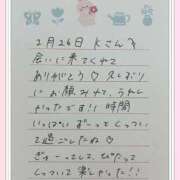 2月26日 Kさんへ
会いに来てくれて
ありがとう♡久しぶり
にお顔みれて、うれし
かったです!!時間
いっぱいずっとくっつい
て過ごしたね♡
ぎゅーっとして、ぴたって
くっついて楽しかった!!